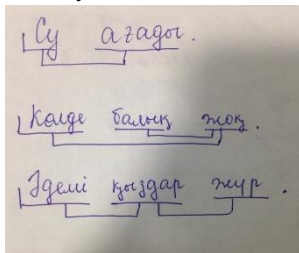 Су ағады.
Көлде балық жоқ.
Әдемі қыздар жүр.